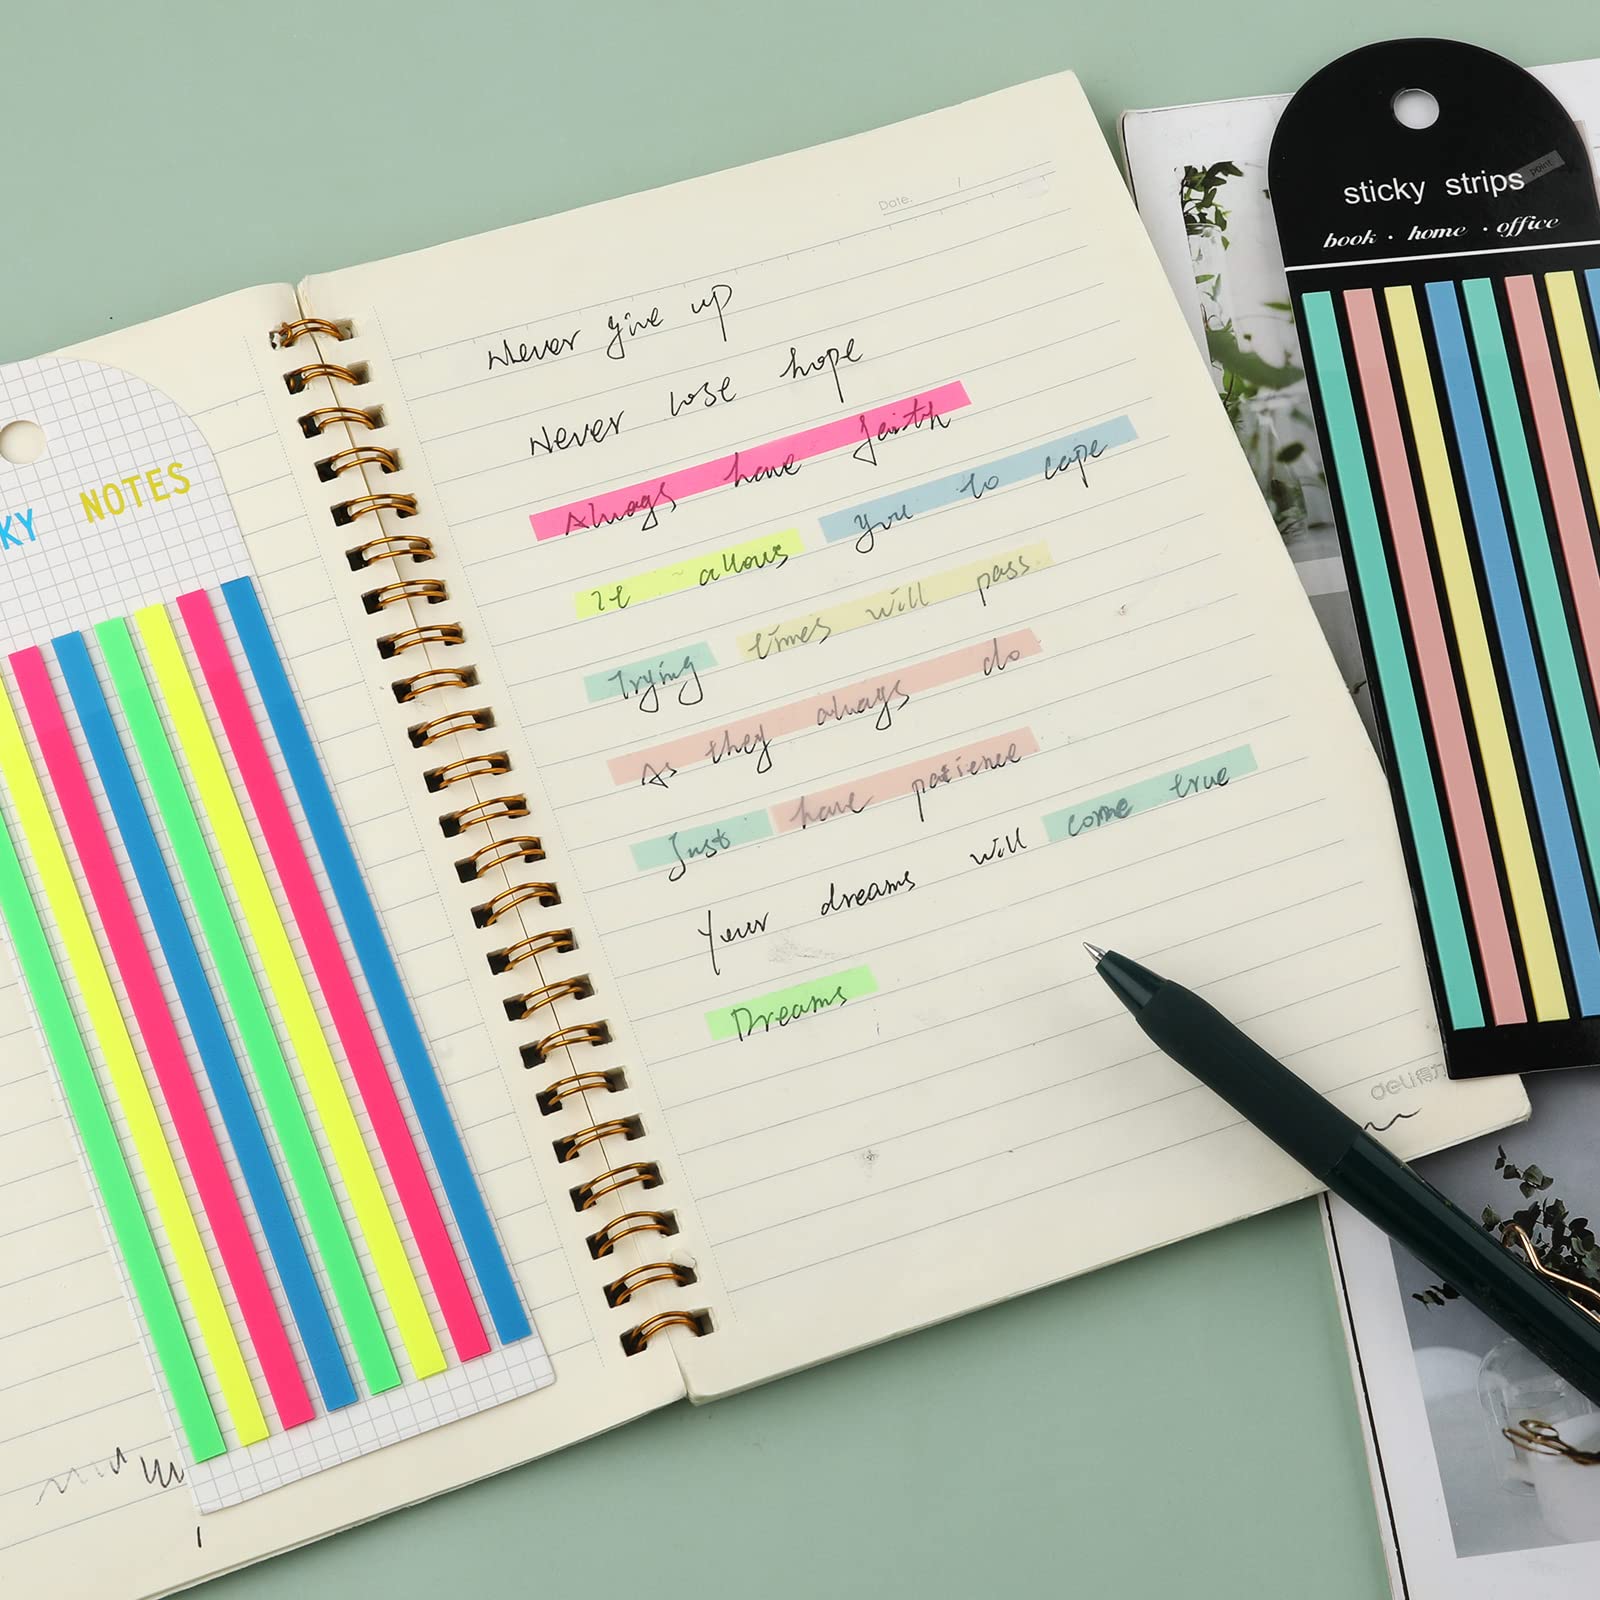 Date.
Never give up
Never lose hope
Always have faith
It allows you to cope
Trying times will pass
As they always do
Just have patience
Your dreams will come true
Dreams
deli得力
KY NOTES
sticky strips
point
book · home · office